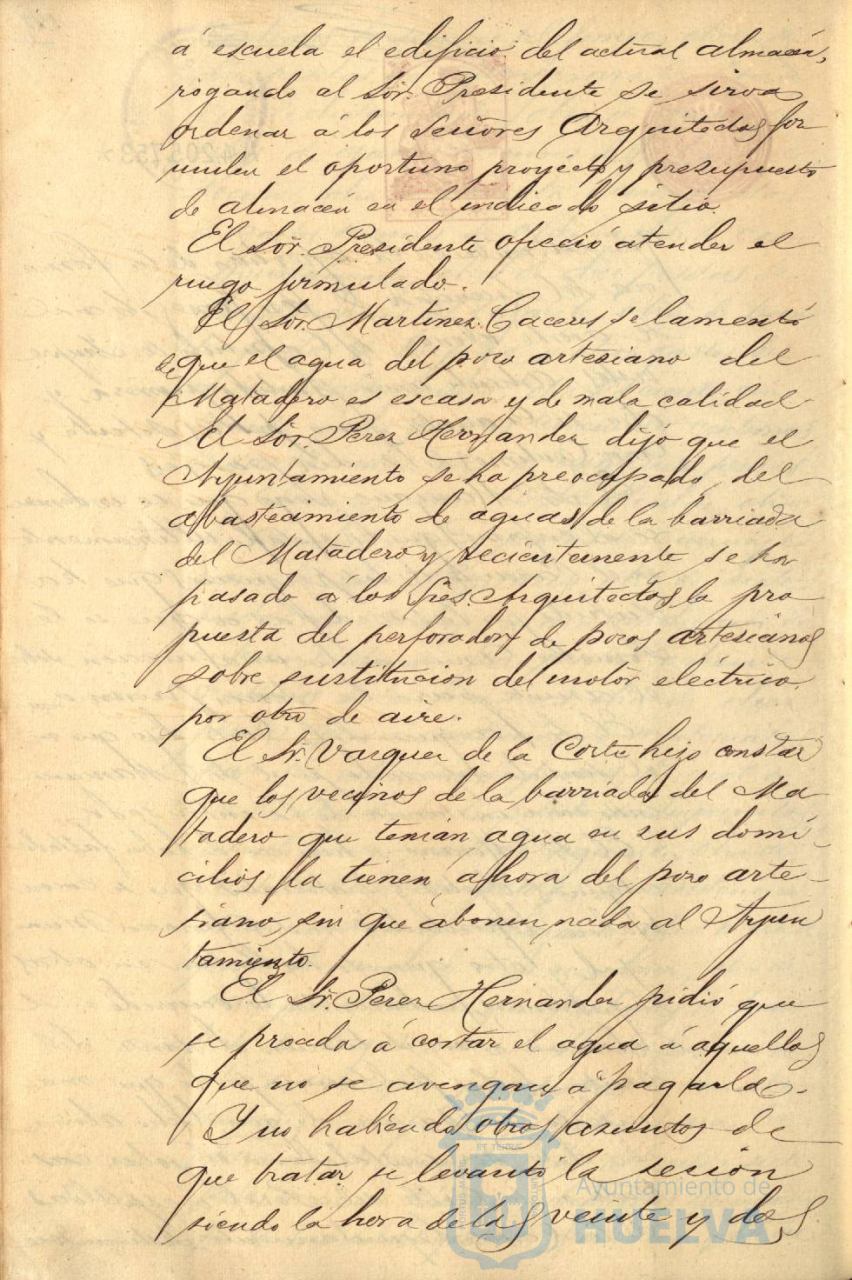 á escuela el edificio del actual almacén,
rogando al Sor. Presidente se sirva
ordenar á los Señores Arquitectos for
mulen el oportuno proyecto y presupuesto
de almacén en el indicado sitio.
El Sor. Presidente ofreció atender el
ruego formulado.
El Sor. Martinez Caceres se lamentó
de que el agua del pozo artesiano del
Matadero es escasa y de mala calidad
El Sor. Perez Hernandez dijó que el
Ayuntamiento se ha preocupado del
abastecimiento de aguas de la barriada
del Matadero y recientemente se ha
pasado á los Sres. Arquitectos la pro
puesta del perforador de pozos artesianos
sobre sustitucion del motor eléctrico
por otro de aire.
El Sr. Vazquez de la Corte hizo constar
que los vecinos de la barriada del Ma-
tadero que tenián agua en sus domi-
cilios la tienen ahora del pozo arte-
siano, sin que abonen nada al Ayun
tamiento.
El Sr. Perez Hernandez pidió que
se proceda á cortar el agua á aquellos
que no se avengan á pagarla.
Y no habiendo otros asuntos de
que tratar se levantó la sesión
siendo la hora de las veinte y dos
Ayuntamiento de
HUELVA